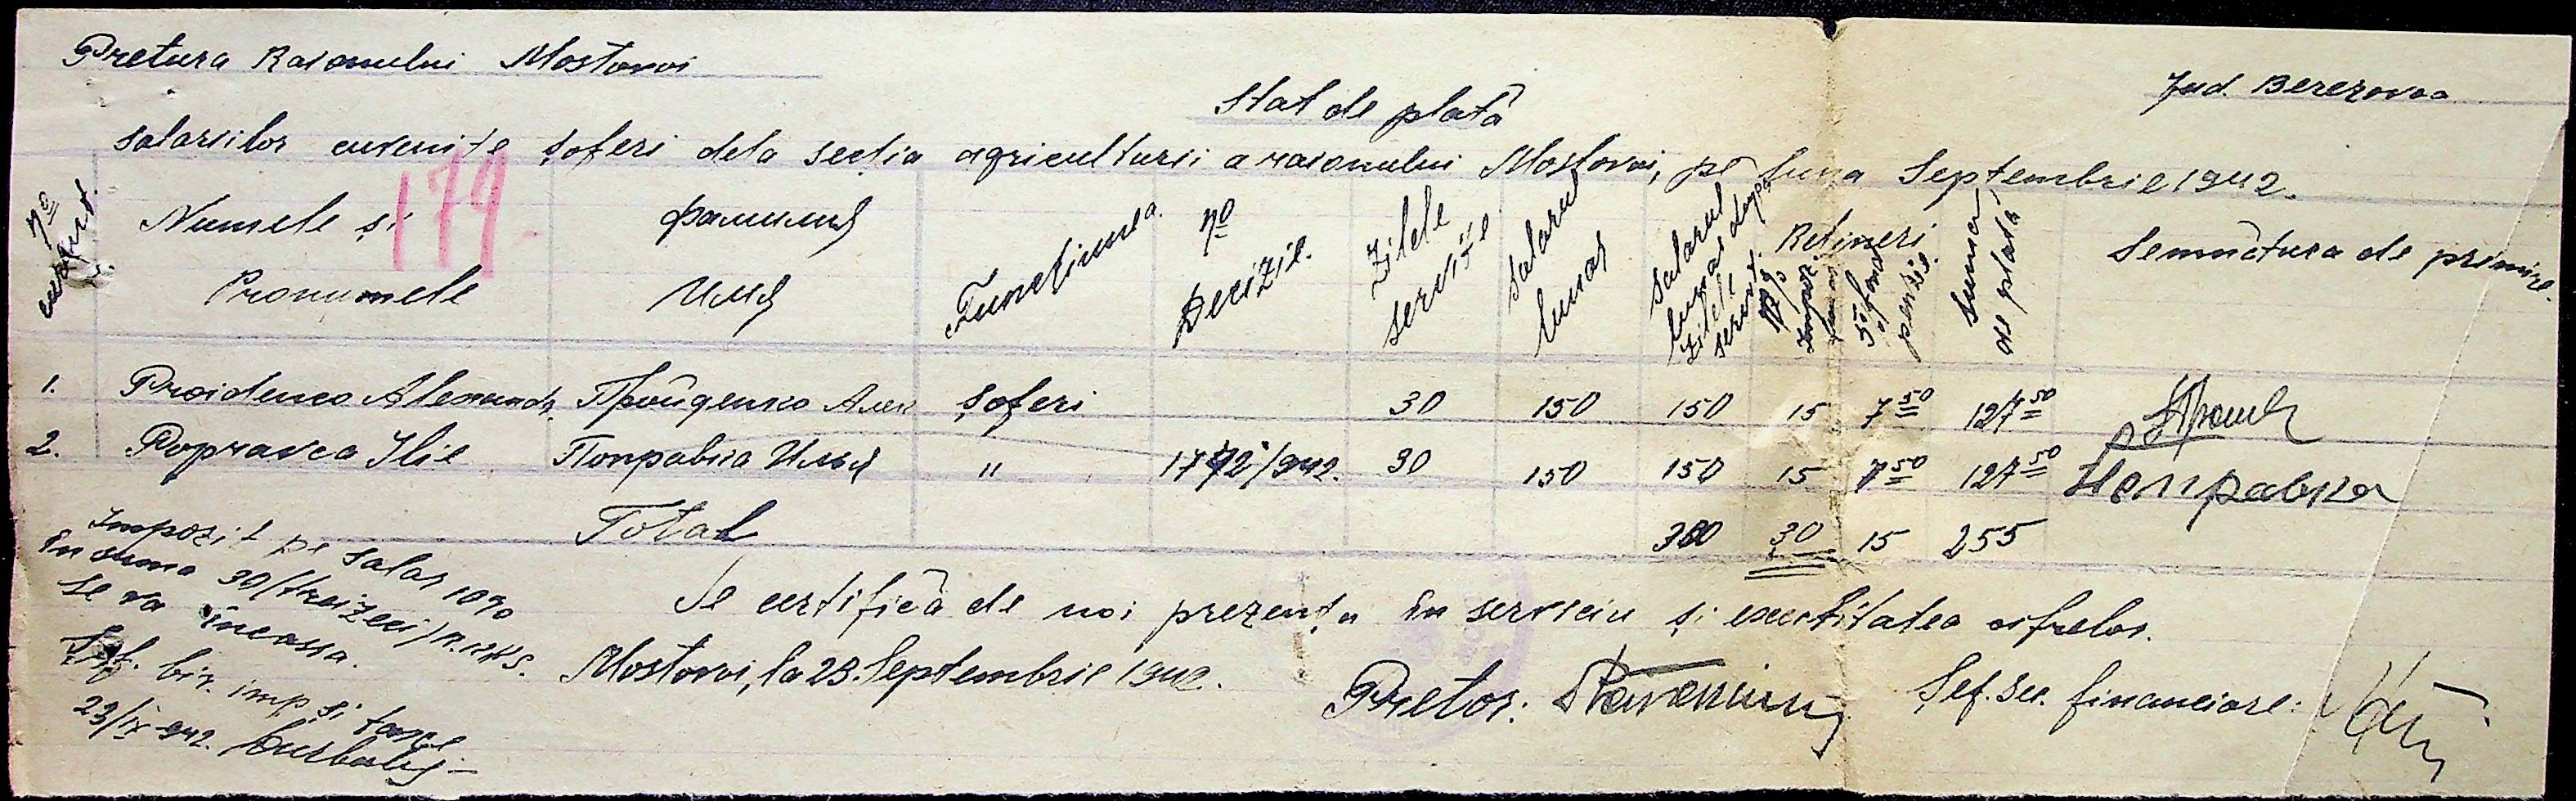 Pretura Raionului Mostovoi
Jud. Berezovca
Stat de plată
salariilor cuvenite șoferi dela secția agriculturii a raionului Mostovoi, pe luna Septembrie 1942.
179
No curent.
Numele și Pronumele
Фамилия Имя
Funcțiunea
No Decizie.
Zilele servite
Salarul lunar
Salarul lunar după zilele servit.
Rețineri
10% impoz.
5% fond pensie.
Suma de plată
Semnătura de primire.
1. Proidenco Alexandr. Пройденко Алек șoferi 30 150 150 15 7 50 127 50
2. Popravca Ilie Поправка Илья " 1772/942. 30 150 150 15 7 50 127 50 Поправка
Total 300 30 15 255
Impozit pe salar 10%
în suma 30/treizeci/R.K.K.S.
se va încassa.
Șef. bir. imp și taxe
23/IX-942.
Se certifică de noi prezența în serviciu și exactitatea cifrelor.
Mostovoi, la 23. Septembrie 1942.
Pretor:
Șef. sec. financiare: